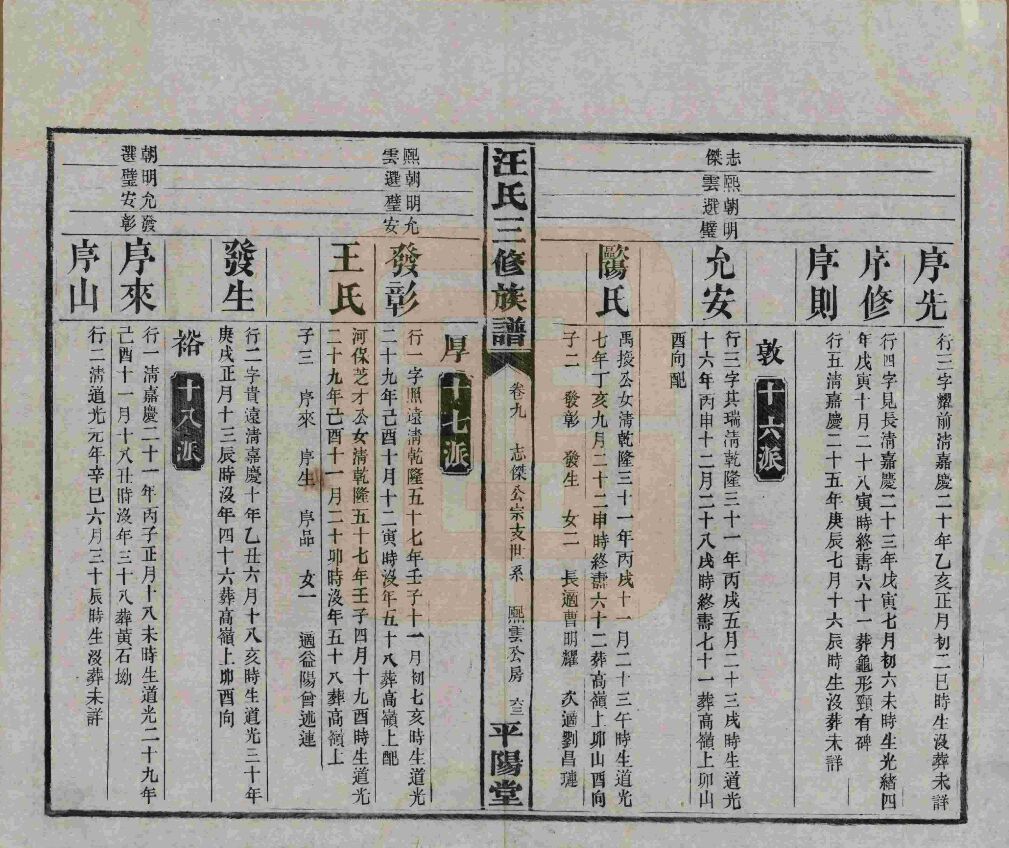 序先
行三字耀前淸嘉慶二十年乙亥正月初二巳時生沒葬未詳
序修
行四字見長淸嘉慶二十三年戊寅七月初六未時生光緒四
年戊寅十月二十八寅時終壽六十一葬龜形頸有碑
序則
行五淸嘉慶二十五年庚辰七月十六辰時生沒葬未詳
敦 十六派
志熙朝明
傑雲選璧
允安
行三字其瑞淸乾隆三十一年丙戌五月二十三戌時生道光
十六年丙申十二月二十八戌時終壽七十一葬高嶺上卯山
酉向配
歐陽氏
禹接公女淸乾隆三十一年丙戌十一月二十三午時生道光
七年丁亥九月二十二申時終壽六十二葬高嶺上卯山酉向
子二 發彰 發生 女二 長適曹明耀 次適劉昌璉
汪氏三修族譜 卷九 志傑公宗支世系 熙雲公房 六三 平陽堂
厚 十七派
熙朝明允
雲選璧安
發彰
行一字照遠淸乾隆五十七年壬子十一月初七亥時生道光
二十九年己酉十月十二寅時沒年五十八葬高嶺上配
王氏
河保芝才公女淸乾隆五十七年壬子四月十九酉時生道光
二十九年己酉十一月二十卯時沒年五十八葬高嶺上
子三 序來 序生 序品 女一 適益陽曾述連
發生
行二字貴遠淸嘉慶十年乙丑六月十八亥時生道光三十年
庚戌正月十三辰時沒年四十六葬高嶺上卯酉向
裕 十八派
朝明允發
選璧安彰
序來
行一淸嘉慶二十一年丙子正月十八未時生道光二十九年
己酉十一月十八丑時沒年三十八葬黃石坳
序山
行二淸道光元年辛巳六月三十辰時生沒葬未詳